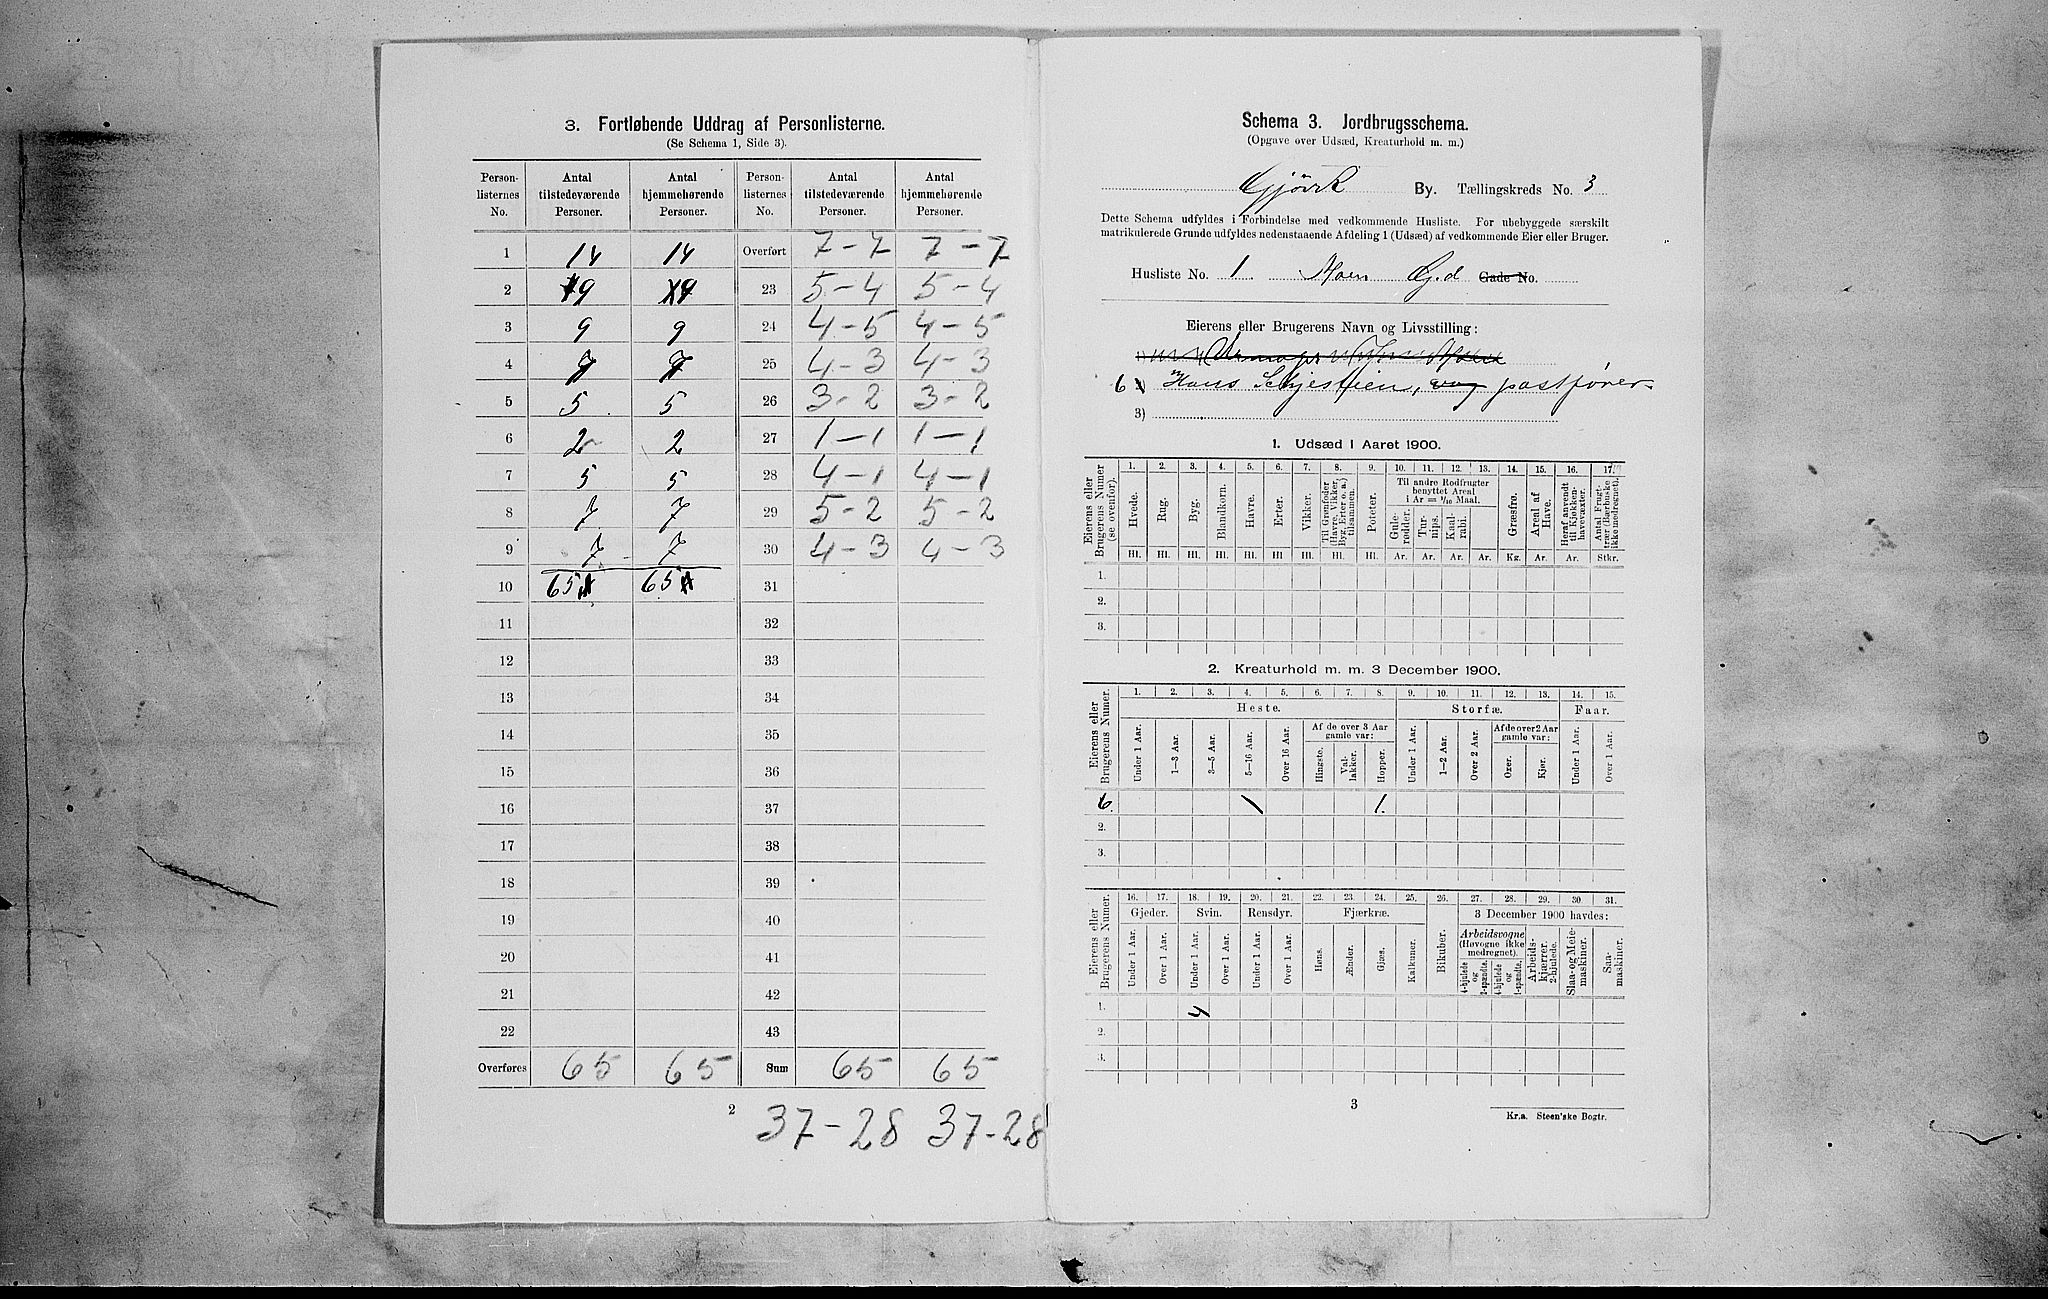 3. Fortløbende Uddrag af Personlisterne.
(Se Schema 1, Side 3).
Person-listernes No. Antal tilstedeværende Personer. Antal hjemmehørende Personer. Person-listernes No. Antal tilstedeværende Personer. Antal hjemmehørende Personer.
1 14 14 Overført 7-7 7-7
2 9 9 23 5-4 5-4
3 9 9 24 4-5 4-5
4 7 7 25 4-3 4-3
5 5 5 26 3-2 3-2
6 2 2 27 1-1 1-1
7 5 5 28 4-1 4-1
8 7 7 29 5-2 5-2
9 7 7 30 4-3 4-3
10 65 65 31
11 32
12 33
13 34
14 35
15 36
16 37
17 38
18 39
19 40
20 41
21 42
22 43
Overføres 65 65 Sum 65 65
2
37-28 37-28
Schema 3. Jordbrugsschema.
(Opgave over Udsæd, Kreaturhold m. m.)
Gjövik By. Tællingskreds No. 3
Dette Schema udfyldes i Forbindelse med vedkommende Husliste. For ubebyggede særskilt
matrikulerede Grunde udfyldes nedenstaaende Afdeling 1 (Udsæd) af vedkommende Eier eller Bruger.
Husliste No. 1 Moen Gd Gade No.
Eierens eller Brugerens Navn og Livsstilling:
6 Hans Schjestien, postfører
3)
1. Udsæd i Aaret 1900.
Eierens eller Brugerens Numer (se ovenfor).
1. 2. 3. 4. 5. 6. 7. 8. 9. 10. 11. 12. 13. 14. 15. 16. 17.
Hvede. Rug. Byg. Blandkorn. Havre. Erter. Vikker. Til Grønfoder (Havre, Vikker, Byg, Erter o. a.) tilsammen. Poteter.
Til andre Rodfrugter benyttet Areal i Ar = 1/10 Maal.
Gule-rødder. Tur-nips. Kaal-rabi. Græsfrø. Areal af Have. Heraf anvendt til Kjøkken-havevæxter. Antal Frugt-trær (Bærbuske ikke medregnet).
Hl. Hl. Hl. Hl. Hl. Hl. Hl. Hl. Hl. Ar. Ar. Ar. Ar. Kg. Ar. Ar. Stkr.
1.
2.
3.
2. Kreaturhold m. m. 3 December 1900.
Eierens eller Brugerens Numer.
1. 2. 3. 4. 5. 6. 7. 8. 9. 10. 11. 12. 13. 14. 15.
Heste. Storfæ. Faar.
Af de over 3 Aar gamle var: Af de over 2 Aar gamle var:
Under 1 Aar. 1-3 Aar. 3-5 Aar. 5-16 Aar. Over 16 Aar. Hingste. Val-lakker. Hopper. Under 1 Aar. 1-2 Aar. Over 2 Aar. Oxer. Kjør. Under 1 Aar. Over 1 Aar.
6. 1 1.
2.
3.
Eierens eller Brugerens Numer.
16. 17. 18. 19. 20. 21. 22. 23. 24. 25. 26. 27. 28. 29. 30 31.
Gjeder. Svin. Rensdyr. Fjærkræ. 3 December 1900 havdes:
Under 1 Aar. Over 1 Aar. Under 1 Aar. Over 1 Aar. Under 1 Aar. Over 1 Aar. Høns. Ænder. Gjæs. Kalkuner. Bikuber.
Arbeidsvogne (Høvogne ikke medregnet).
4-hjulede og 2-spændte. 4-hjulede og 1-spændte. Arbeids-kjærrer, 2-hjulede. Slaa- og Meie-maskiner. Saa-maskiner.
1. 4
2.
3.
3
Kr.a. Steen'ske Bogtr.